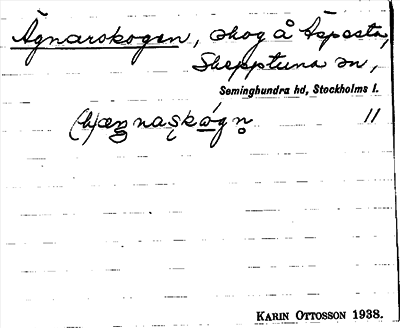 Ägnarskogen, skog å Åspesta,
Skepptuna sn,
Seminghundra hd, Stockholms l.
(h)æŋnaskógn̥ 11
KARIN OTTOSSON 1938.